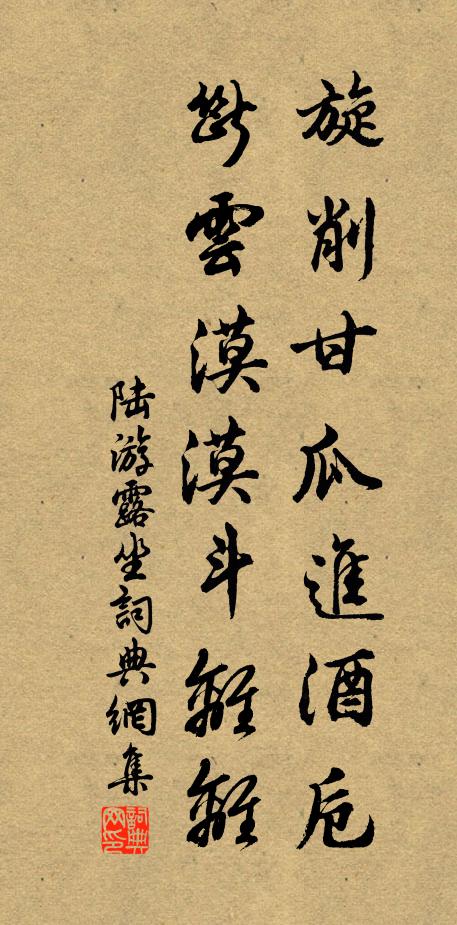 旋削甘瓜進酒卮
斷雲漠漠斗離離
陆游露坐詞典網集
詞典網印